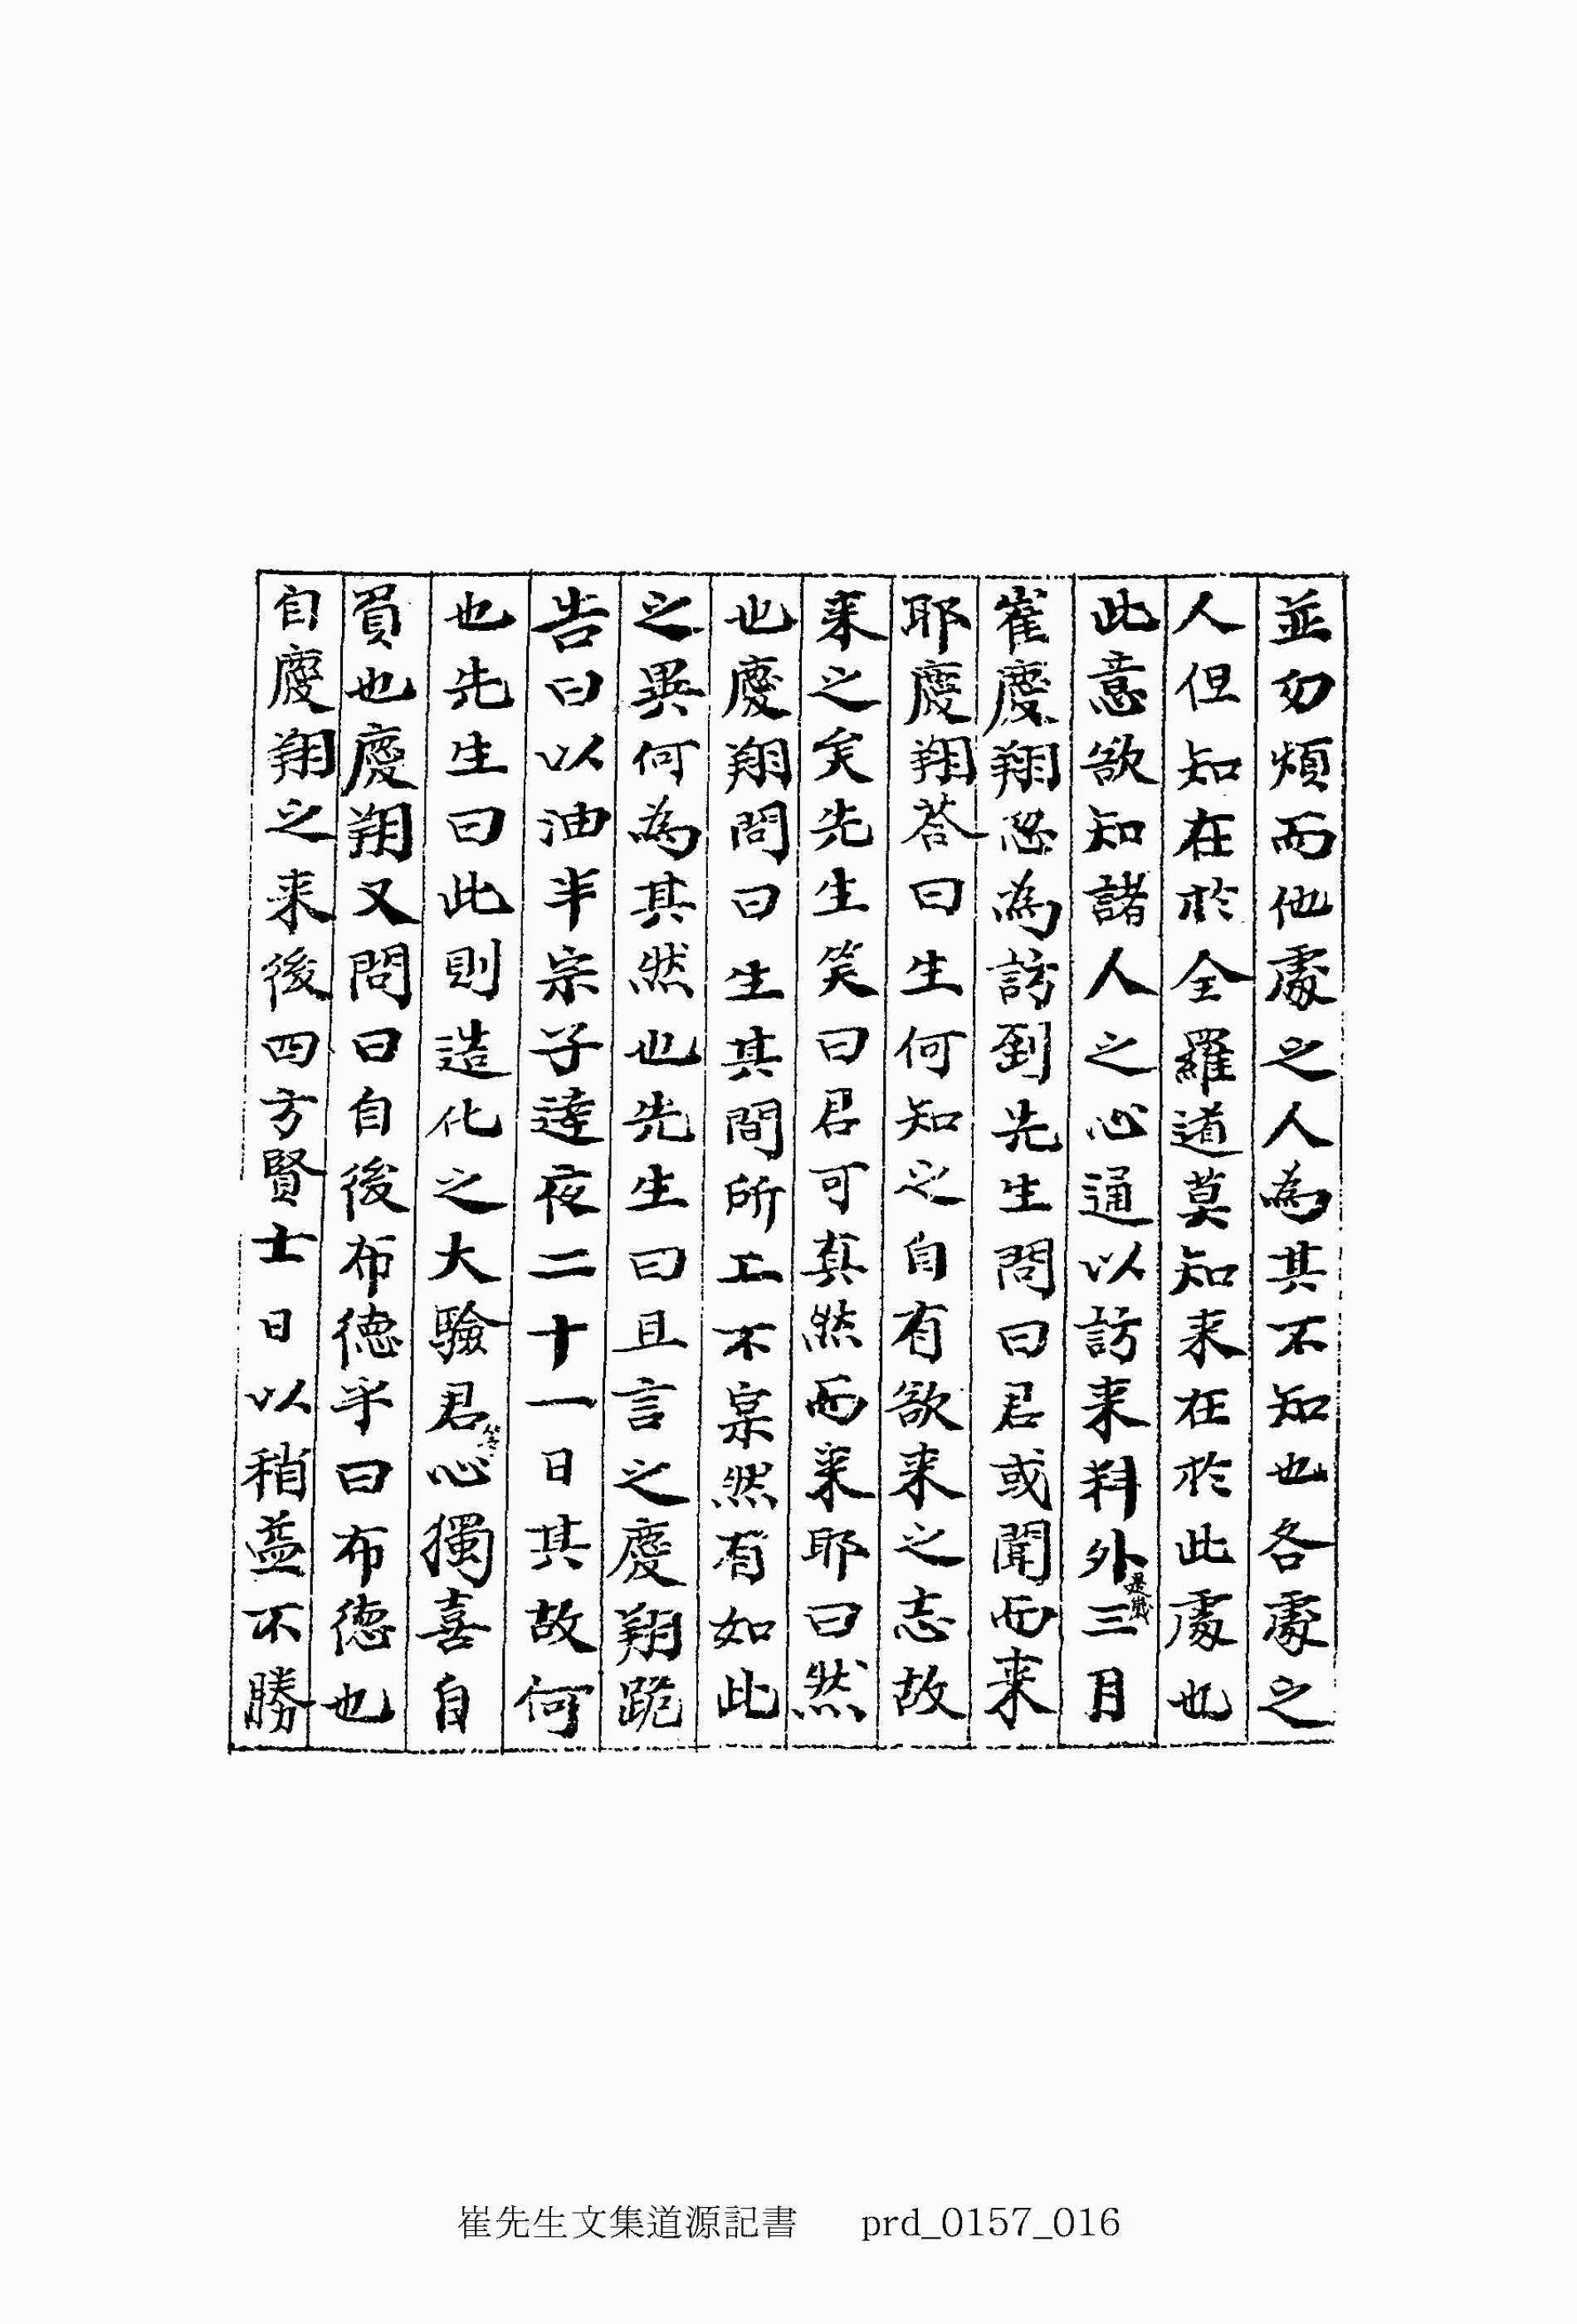 並勿煩而他處之人為其不知也各處之
人但知在於全羅道莫知来在於此處也
此意欲知諸人之心通以訪来料外是歲三月
崔慶翔忽為訪到先生問曰君或聞而来
耶慶翔荅曰生何知之自有欲来之志故
来之矣先生笑曰君可真然而来耶曰然
也慶翔問曰生其間所工不宲然有如此
之異何為其然也先生曰且言之慶翔跪
告曰以油半宗子達夜二十一日其故何
也先生曰此則造化之大驗君心獨喜自
負也慶翔又問曰自後布德乎曰布德也
自慶翔之来後四方賢士日以稍益不勝
崔先生文集道源記書 prd_0157_016